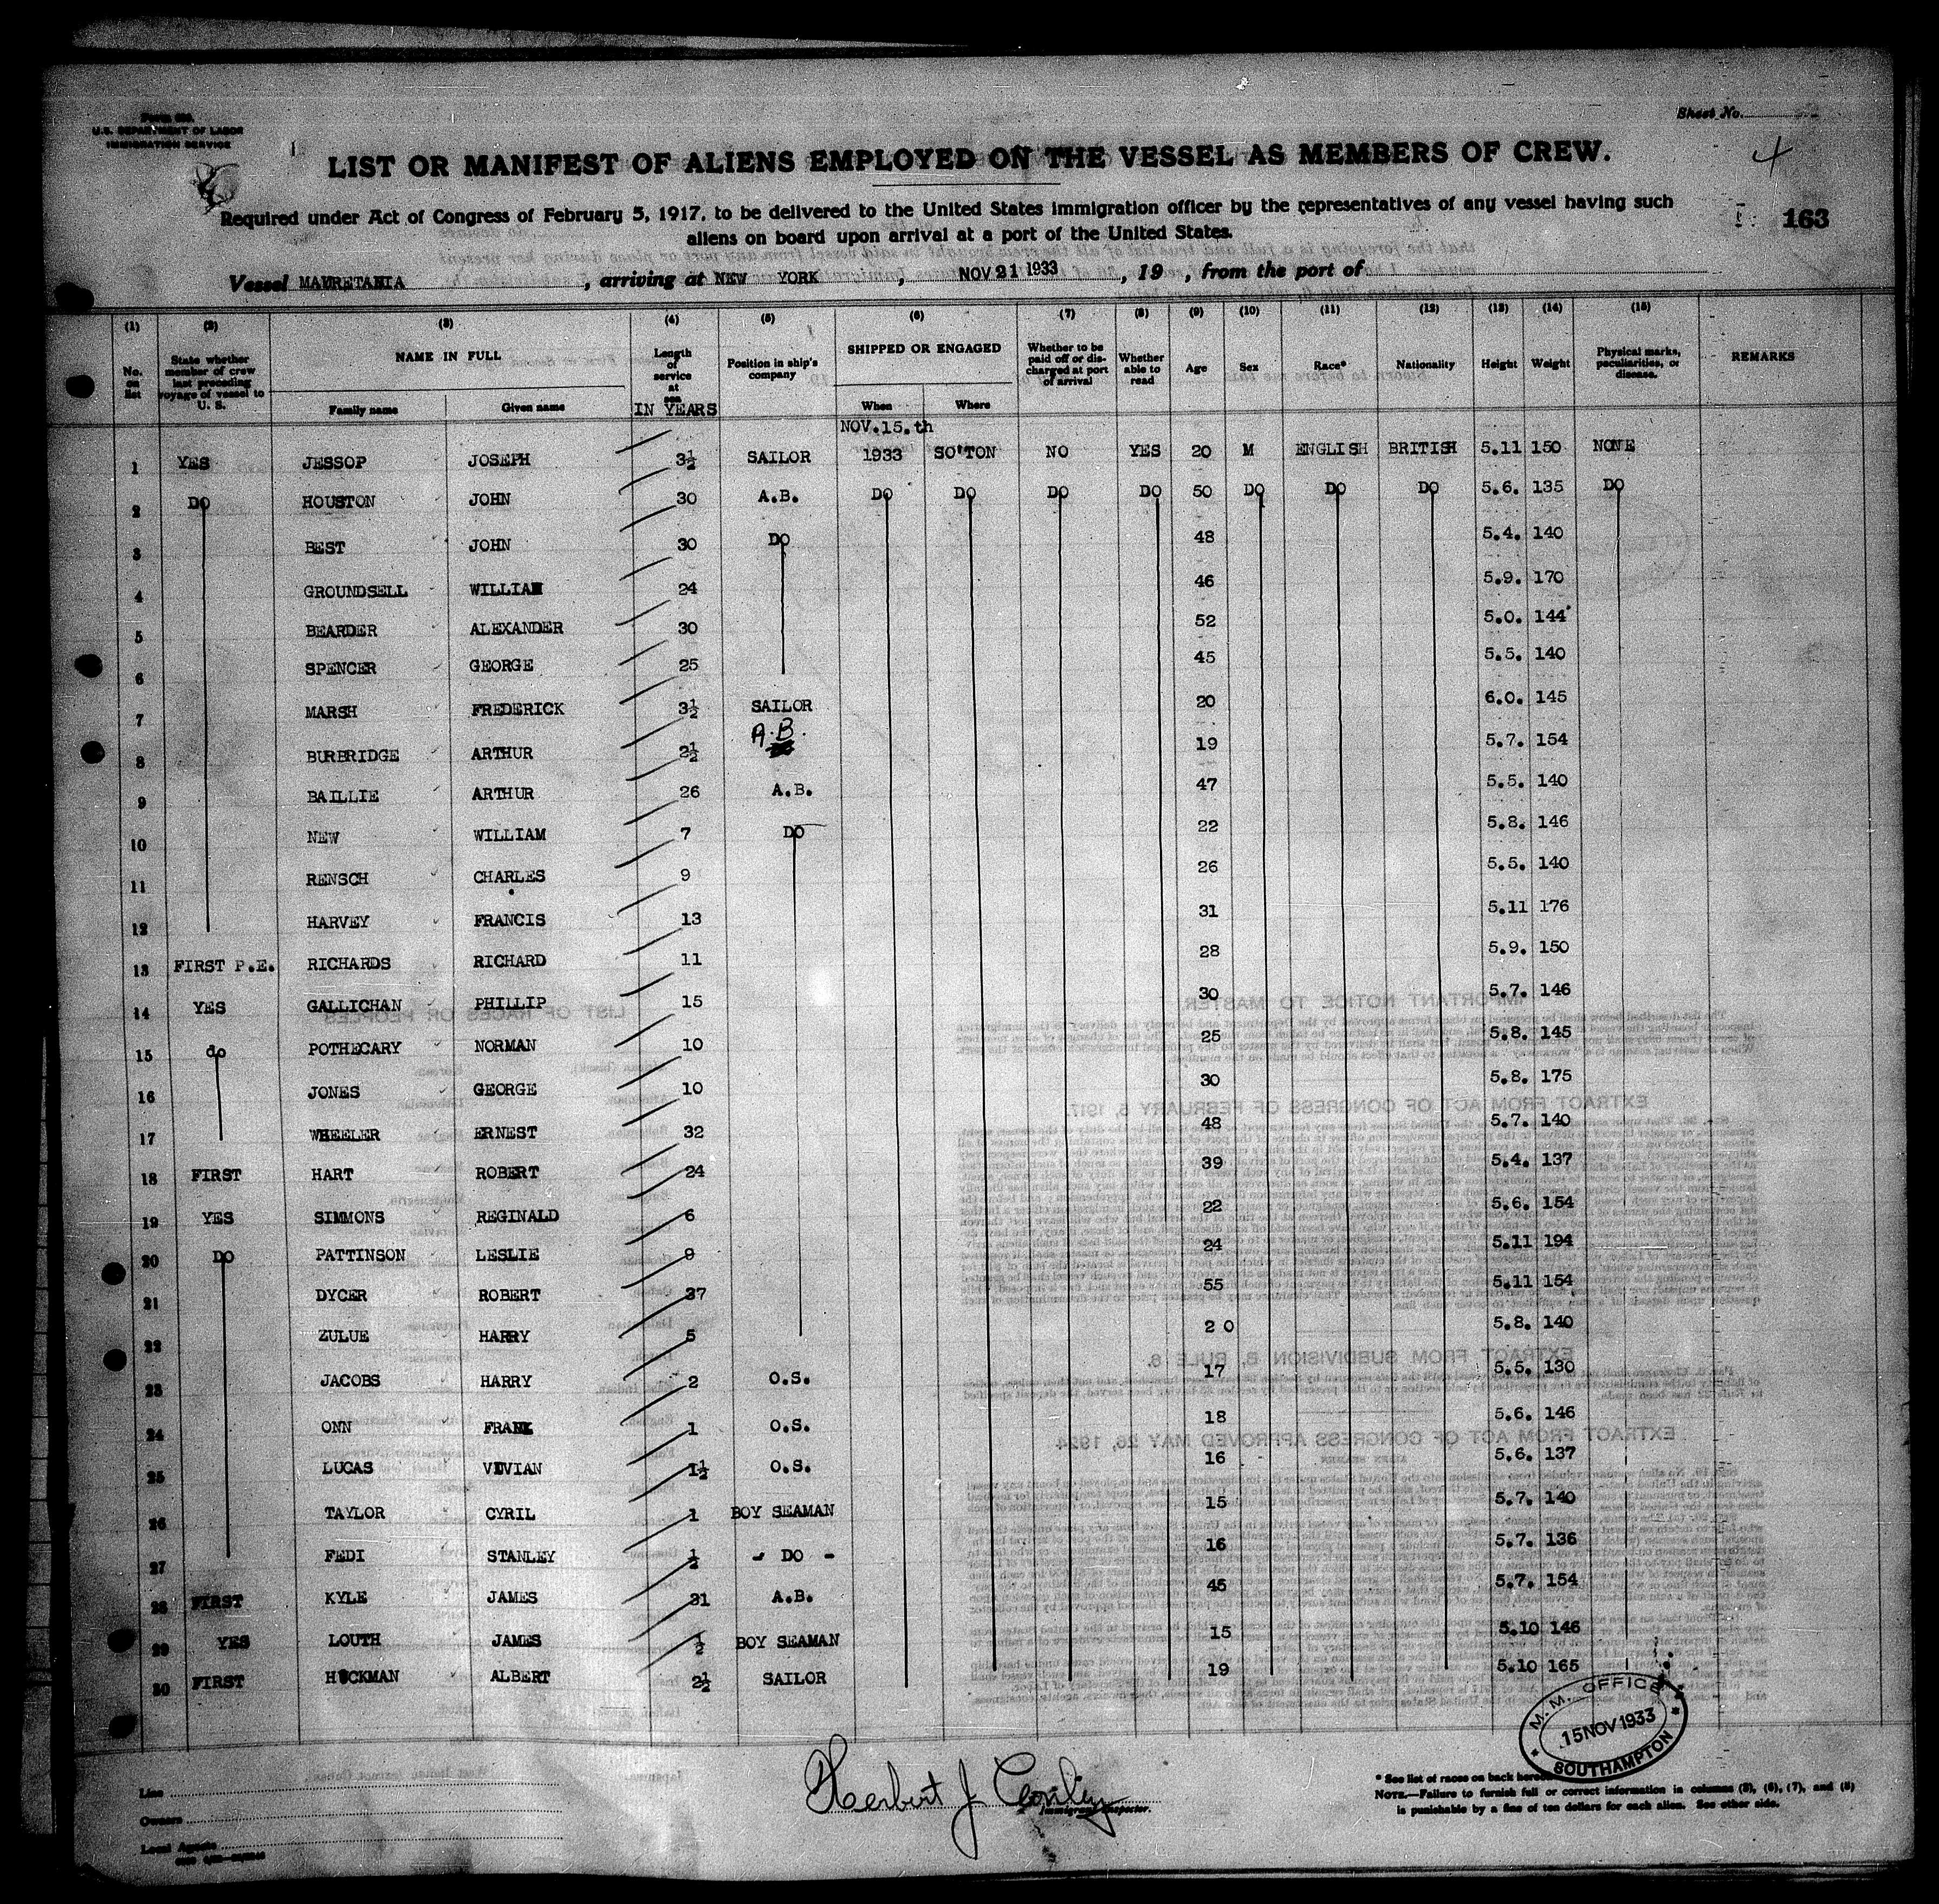 U.S. DEPARTMENT OF LABOR
IMMIGRATION SERVICE
Sheet No.
4
LIST OR MANIFEST OF ALIENS EMPLOYED ON THE VESSEL AS MEMBERS OF CREW.
Required under Act of Congress of February 5, 1917, to be delivered to the United States immigration officer by the representatives of any vessel having such
aliens on board upon arrival at a port of the United States.
163
Vessel MAURETANIA, arriving at NEW YORK, NOV 21 1933, 19 , from the port of
(1) (2) (3) (4) (5) (6) (7) (8) (9) (10) (11) (12) (13) (14) (15)
No. on list State whether member of crew last preceding voyage of vessel to U. S. NAME IN FULL Family name Given name Length of service at sea IN YEARS Position in ship's company SHIPPED OR ENGAGED When Where Whether to be paid off or discharged at port of arrival Whether able to read Age Sex Race* Nationality Height Weight Physical marks, peculiarities, or disease. REMARKS
NOV.15.th
1 YES JESSOP JOSEPH 3½ SAILOR 1933 SO'TON NO YES 20 M ENGLISH BRITISH 5.11 150 NONE
2 DO HOUSTON JOHN 30 A.B. DO DO DO DO 50 DO DO DO 5.6. 135 DO
3 BEST JOHN 30 DO 48 5.4. 140
4 GROUNDSELL WILLIAM 24 46 5.9. 170
5 BEARDER ALEXANDER 30 52 5.0. 144
6 SPENCER GEORGE 25 45 5.5. 140
7 MARSH FREDERICK 3½ SAILOR 20 6.0. 145
8 BURBRIDGE ARTHUR 2½ A.B. 19 5.7. 154
9 BAILLIE ARTHUR 26 A.B. 47 5.5. 140
10 NEW WILLIAM 7 DO 22 5.8. 146
11 RENSCH CHARLES 9 26 5.5. 140
12 HARVEY FRANCIS 13 31 5.11 176
13 FIRST P.E. RICHARDS RICHARD 11 28 5.9. 150
14 YES GALLICHAN PHILLIP 15 30 5.7. 146
15 do POTHECARY NORMAN 10 25 5.8. 145
16 JONES GEORGE 10 30 5.8. 175
17 WHEELER ERNEST 32 48 5.7. 140
18 FIRST HART ROBERT 24 39 5.4. 137
19 YES SIMMONS REGINALD 6 22 5.6. 154
20 DO PATTINSON LESLIE 9 24 5.11 194
21 DYCER ROBERT 37 55 5.11 154
22 ZULUE HARRY 5 2 0 5.8. 140
23 JACOBS HARRY 2 O.S. 17 5.5. 130
24 ONN FRANK 1 O.S. 18 5.6. 146
25 LUCAS VIVIAN 1½ O.S. 16 5.6. 137
26 TAYLOR CYRIL 1 BOY SEAMAN 15 5.7. 140
27 FEDI STANLEY ½ - DO - 16 5.7. 136
28 FIRST KYLE JAMES 31 A.B. 45 5.7. 154
29 YES LOUTH JAMES ½ BOY SEAMAN 15 5.10 146
30 FIRST HUCKMAN ALBERT 2½ SAILOR 19 5.10 165
M. M. OFFICE
15 NOV 1933
SOUTHAMPTON
Line
Owners
Local Agents
Herbert J
Immigrant Inspector.
* See list of races on back hereof.
NOTE.—Failure to furnish full or correct information in columns (3), (6), (7), and (8)
is punishable by a fine of ten dollars for each alien. See other side.